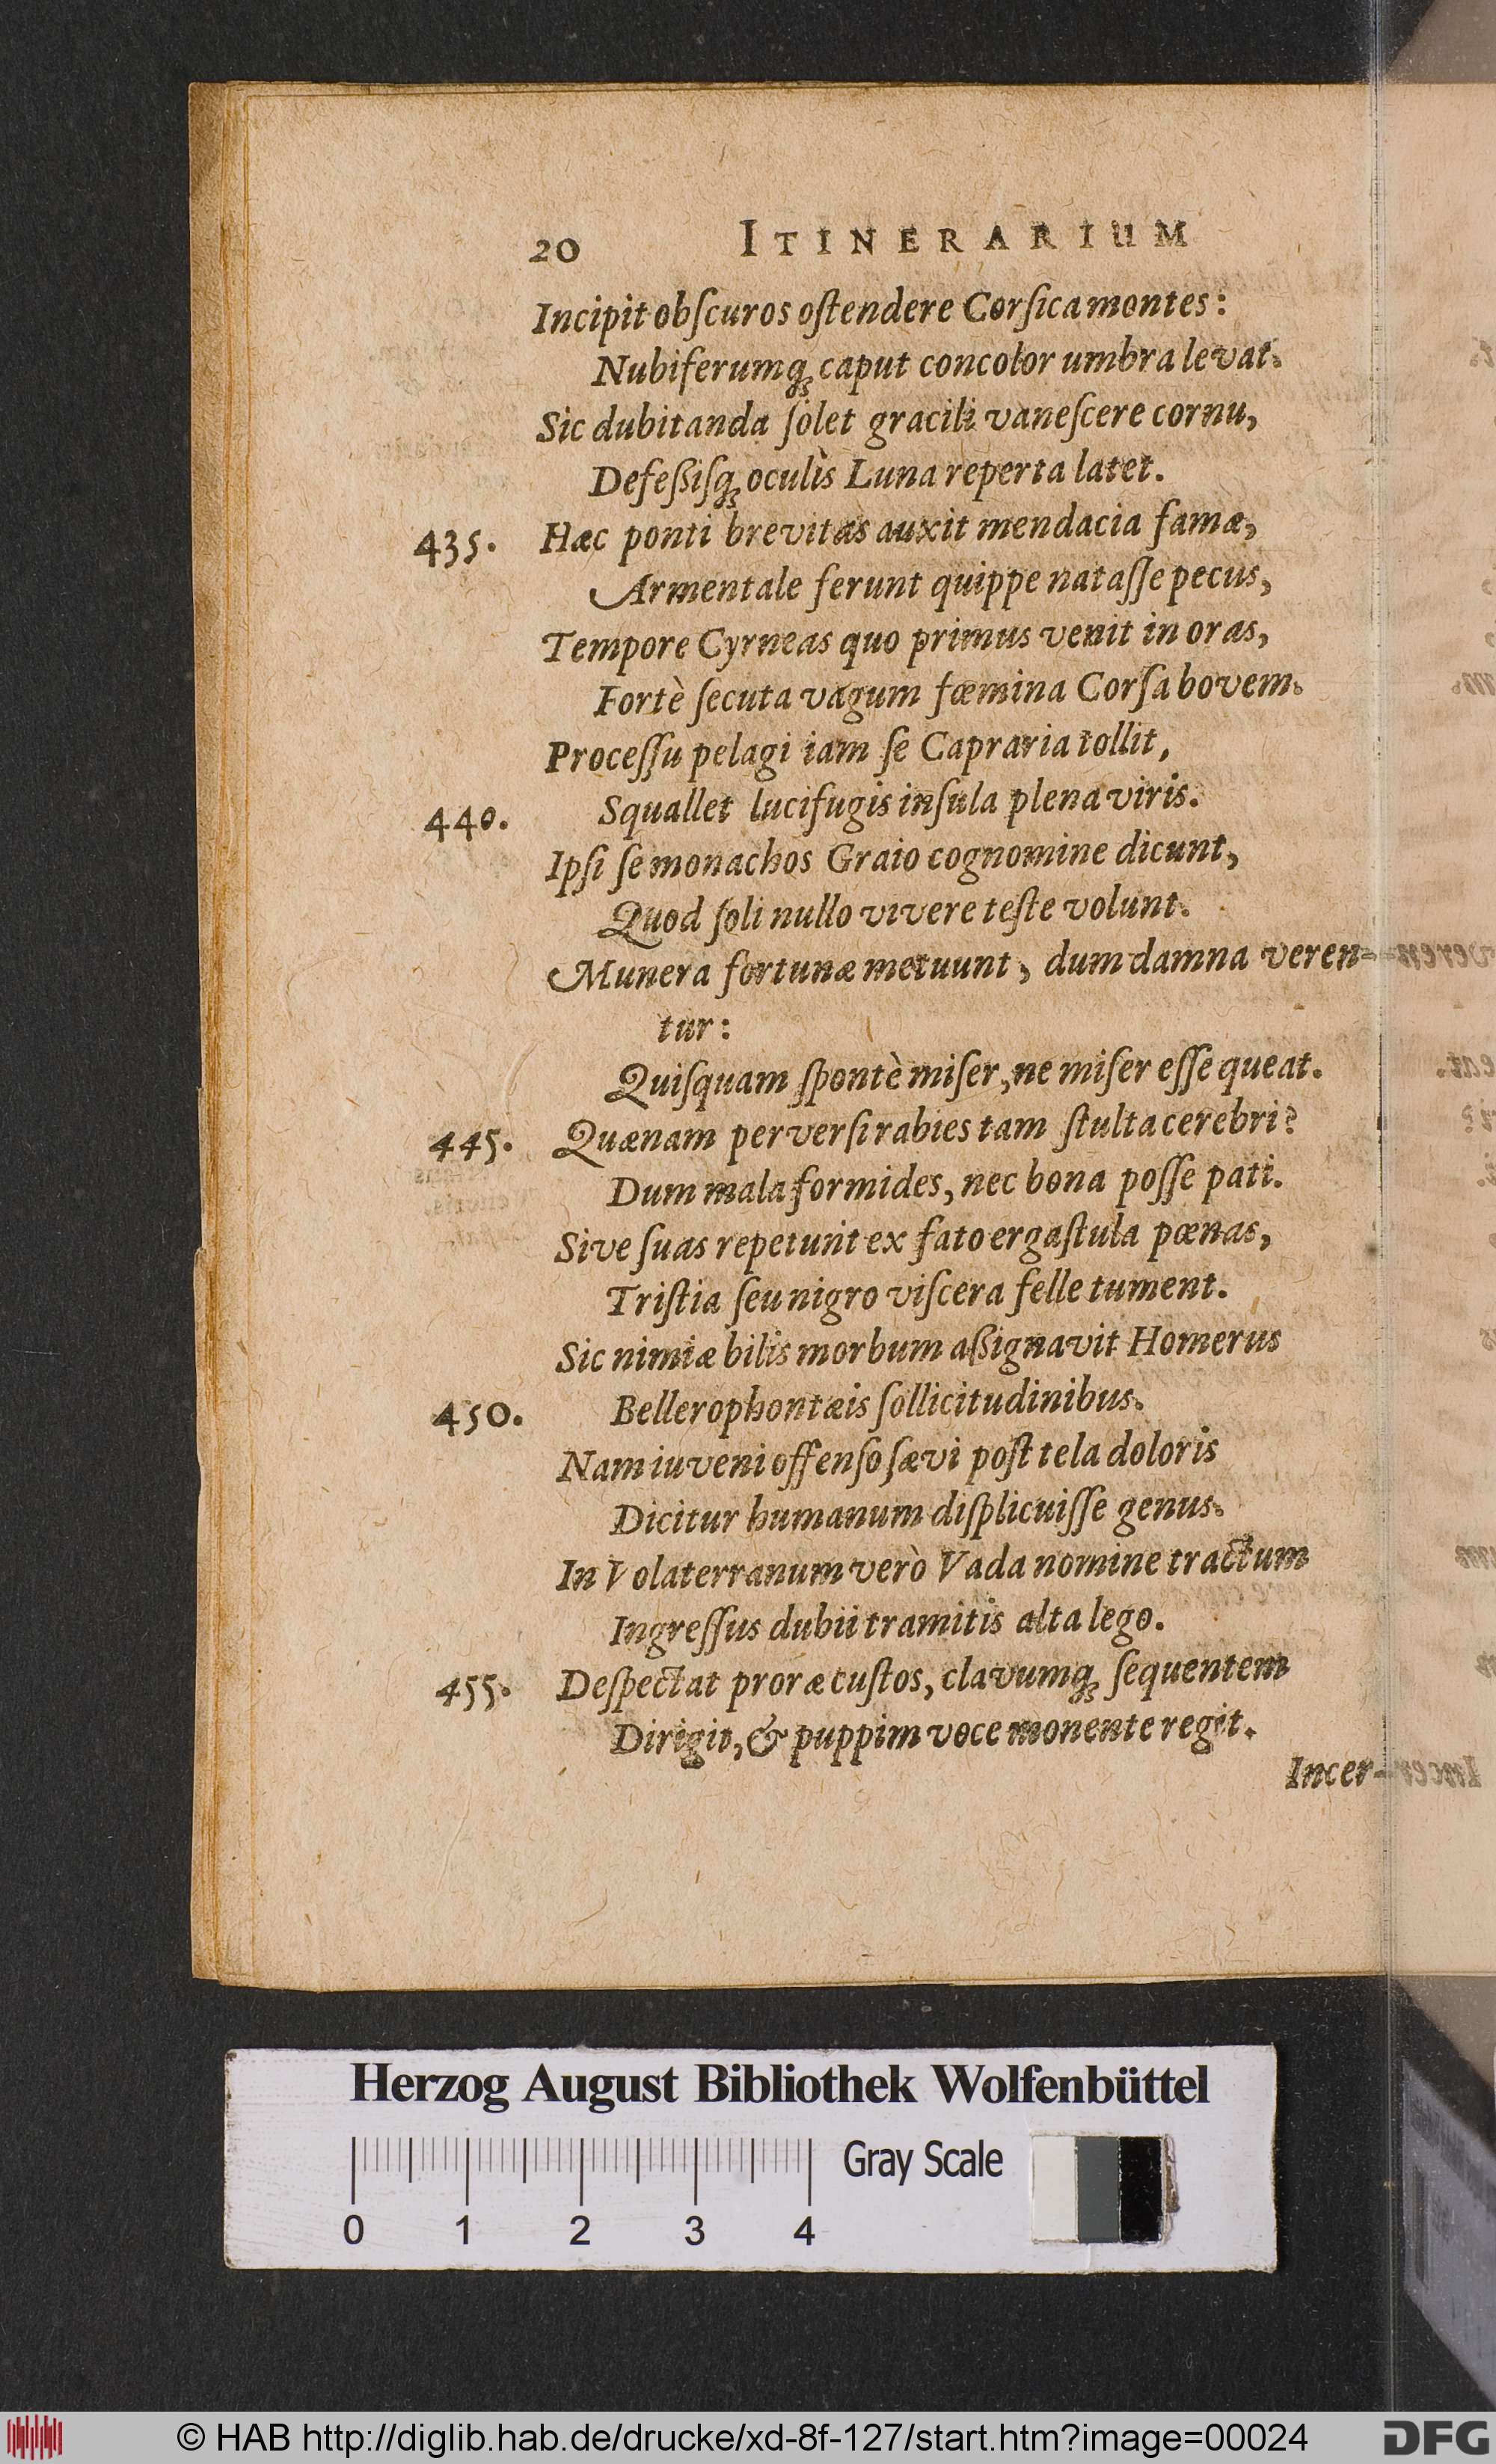 20 ITINERARIUM
Incipit obſcuros oſtendere Corſica montes:
Nubiferumq́ꝫ caput concolor umbra levat.
Sic dubitanda ſolet gracili vaneſcere cornu,
Defeßiſq́ꝫ oculìs Luna reperta latet.
435. Hæc ponti brevitas auxit mendacia famæ,
Armentale ferunt quippe nataſſe pecus,
Tempore Cyrneas quo primus venit in oras,
Fortè ſecuta vagum fœmina Corſa bovem.
Proceſſu pelagi iam ſe Capraria tollit,
440. Squallet lucifugis inſula plena viris.
Ipſi ſe monachos Graio cognomine dicunt,
Quod ſoli nullo vivere teſte volunt.
Munera fortunæ metuunt, dum damna veren-
tur:
Quiſquam ſpontè miſer, ne miſer eſſe queat.
445. Quænam perverſi rabies tam ſtulta cerebri?
Dum mala formides, nec bona poſſe pati.
Sive ſuas repetunt ex fato ergaſtula pœnas,
Triſtia ſeu nigro viſcera felle tument.
Sic nimiæ bilis morbum aßignavit Homerus
450. Bellerophontæis ſollicitudinibus.
Nam iuveni offenſo ſævi poſt tela doloris
Dicitur humanum diſplicuiſſe genus.
In Volaterranum verò Vada nomine tractum
Ingreſſus dubii tramitis alta lego.
455. Deſpectat proræ cuſtos, clavumq́ꝫ ſequentem
Dirigit, & puppim voce monente regit.
Incer-
Herzog August Bibliothek Wolfenbüttel
Gray Scale
0 1 2 3 4
© HAB http://diglib.hab.de/drucke/xd-8f-127/start.htm?image=00024
DFG